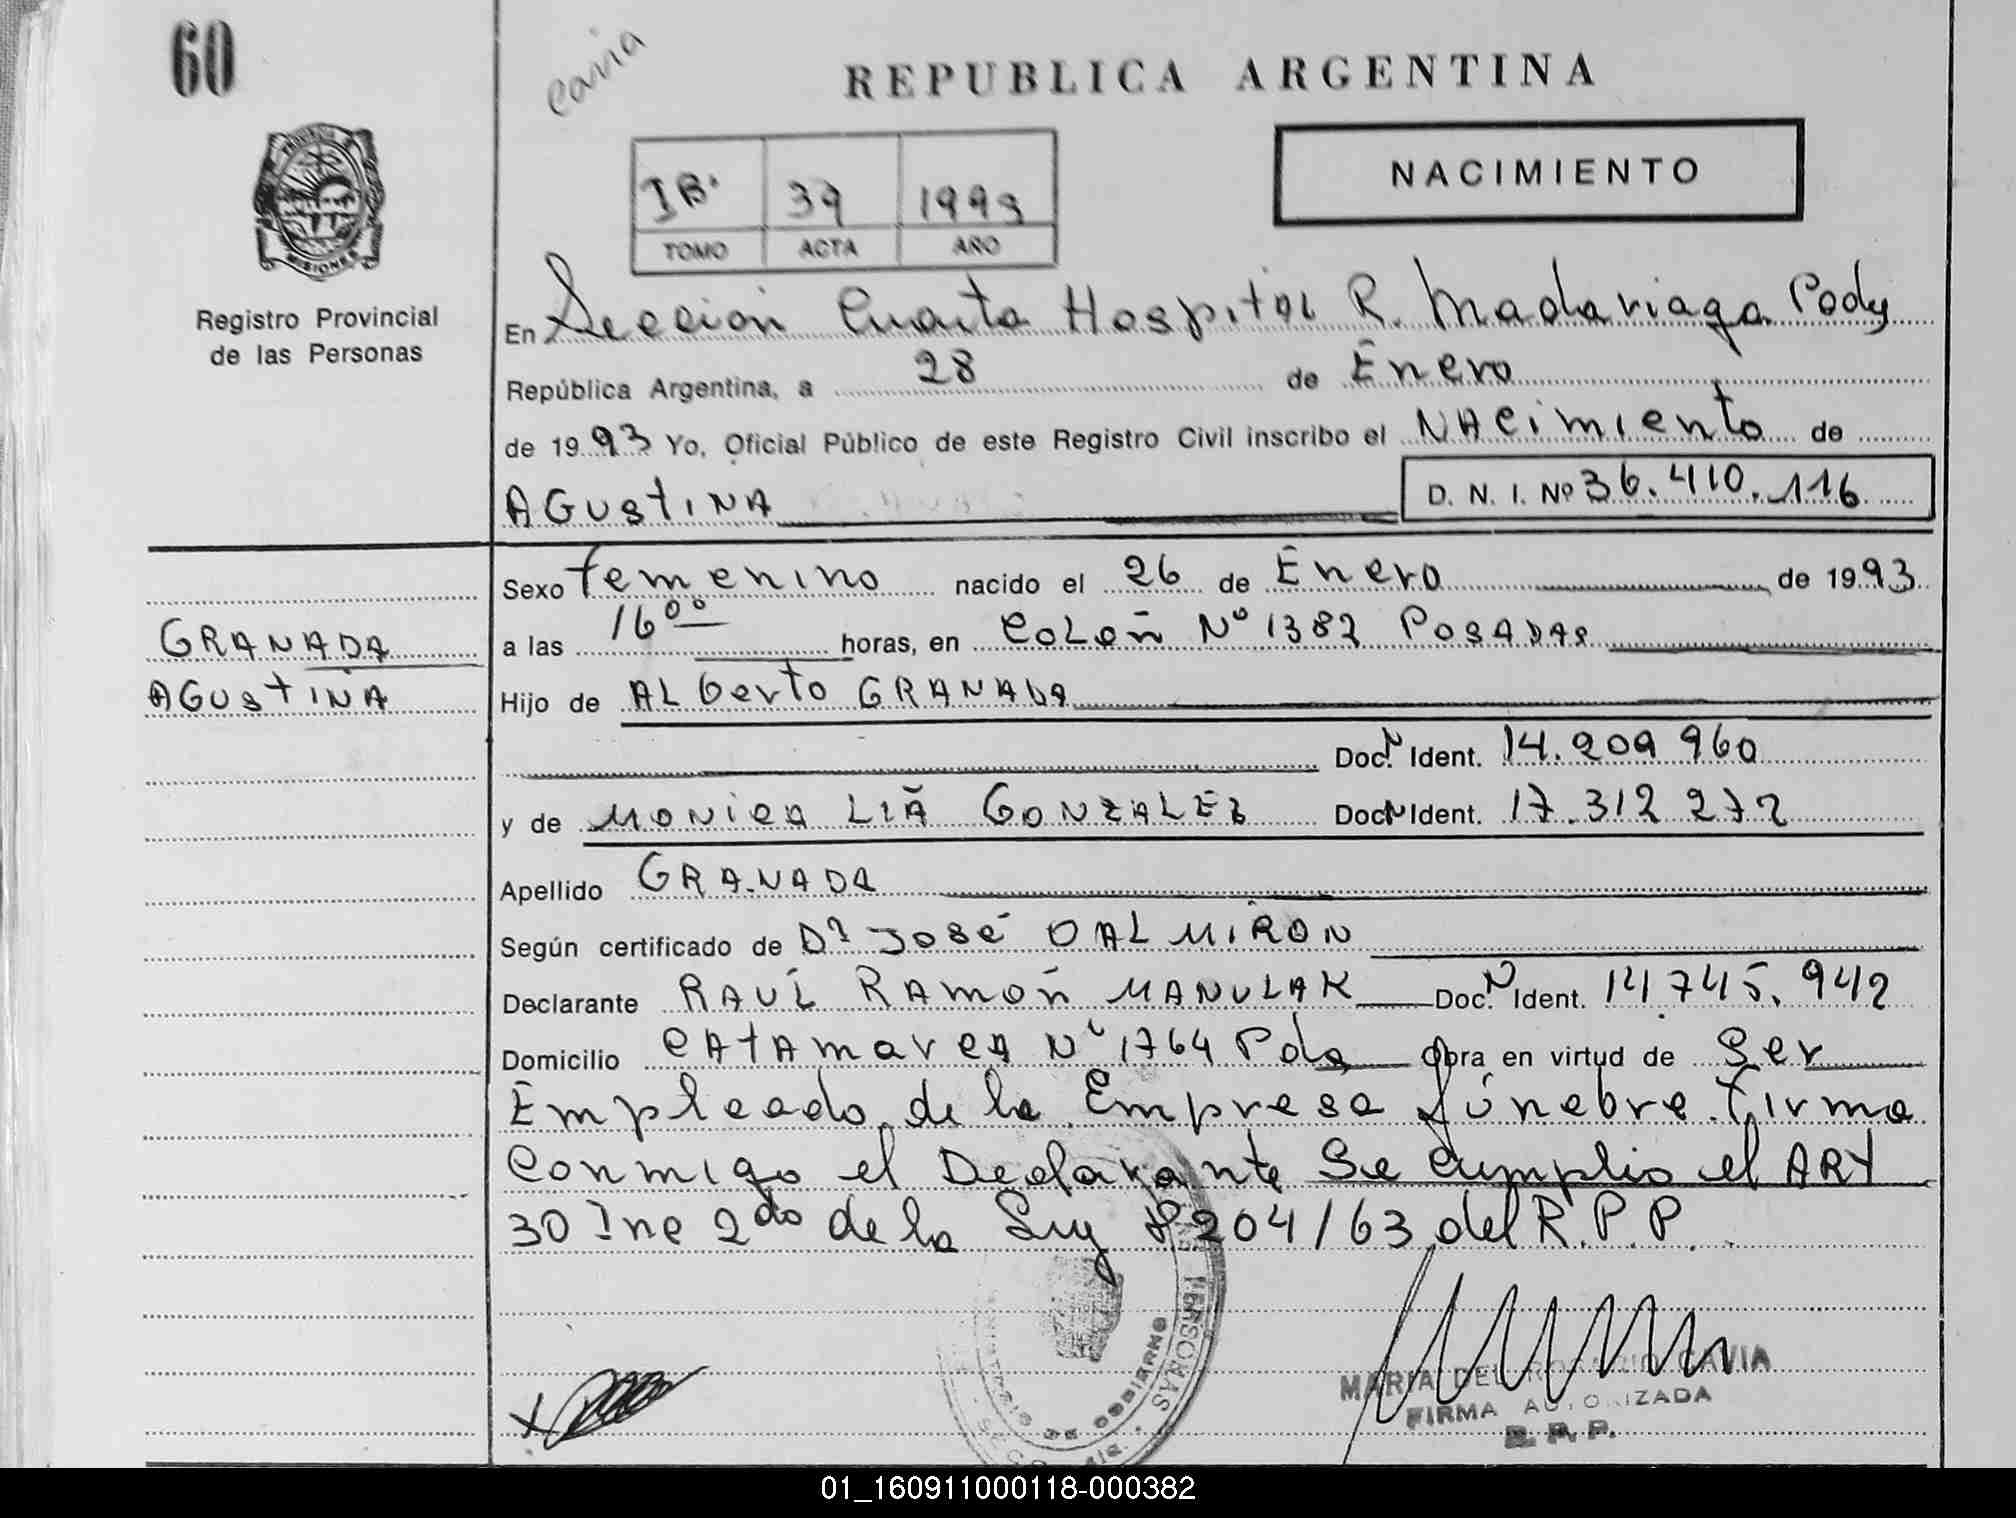 60
cavia
REPUBLICA ARGENTINA
NACIMIENTO
IB· 39 1993
TOMO ACTA AÑO
MISIONES
Registro Provincial
de las Personas
En Sección Cuarta Hospital R. Madariaga Podas
República Argentina, a 28 de Enero
de 1993 Yo, Oficial Público de este Registro Civil inscribo el NACimiento de
AGUstINA D. N. I. Nº 36.410.116
Sexo femenino nacido el 26 de Enero de 1993
a las 16⁰⁰ horas, en COLON Nº 1382 POSADAS
GRANADA
AGUstINA
Hijo de ALberto GRANADA
Doc. N Ident. 14.209 960
y de MONICA LIA GONZALEZ Doc N Ident. 17.312 272
Apellido GRANADA
Según certificado de Dr JOSÉ OALMIRON
Declarante RAUL RAMON MANULAK Doc. N Ident. 14 745.942
Domicilio CAtAmarcA Nº 1764 Pdas Obra en virtud de Ser
Empleado de la Empresa fúnebre. Firma
Conmigo el Declarante Se Cumplio el ARt
30 Inc 2do de la Ley 8204/63 del R.P.P.
PERSONAS
DE GOBIERNO
MARIA DEL ROSARIO CAVIA
FIRMA AUTORIZADA
R. P. P.
01_160911000118-000382